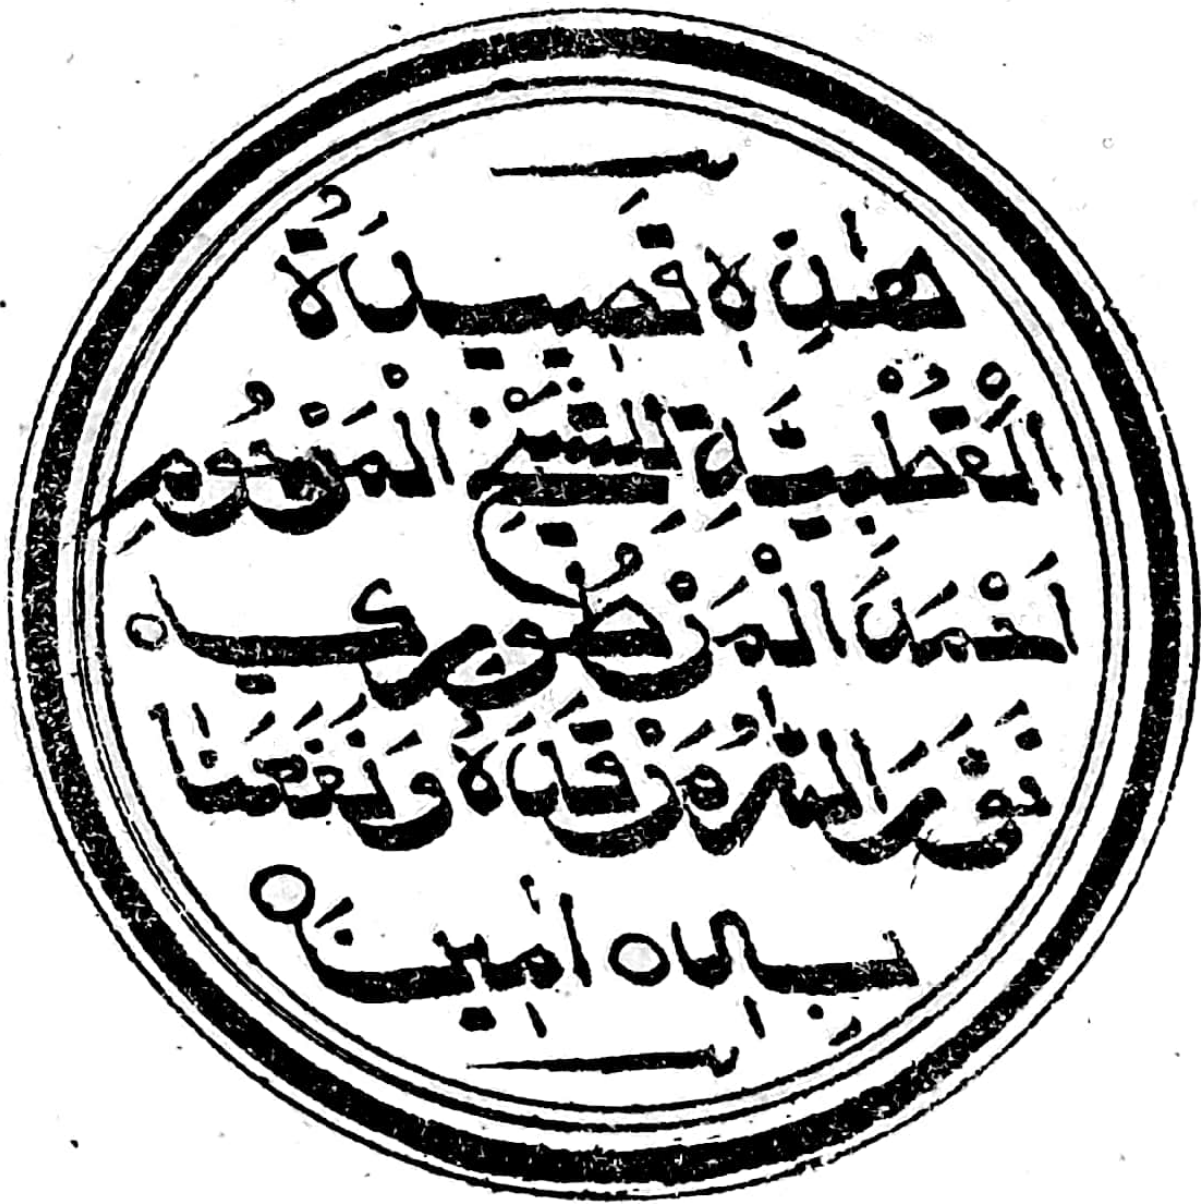 هٰذِهِ قَصِيدَةُ
الْقُطْبِيَّةِ لِلشَّيْخِ الْمَرْحُومِ
اَحْمَدَ الْمَنْطُورِي
نَوَّرَ اللهُ مَرْقَدَهُ وَنَفَعَنَا
بِهِ اٰمِينْ